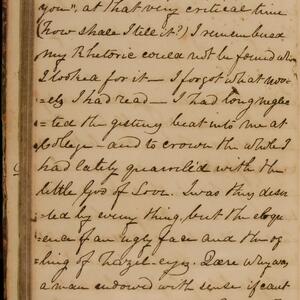 you", at that very critical time
(how shall I tell it?) I remembered
my Rhetoric could not be found when
I looked for it — I forgot what nov=
=els I had read — I had long neglec=
=ted the getting beat into me at
College — and to crown the whole I
had lately quarrel'd with the
little God of Love. Was thus deser
=ted by every thing, but the eloqu
=ence of an ugly face and the
=ling of hazel eyes.
a man endowed with sense if caut